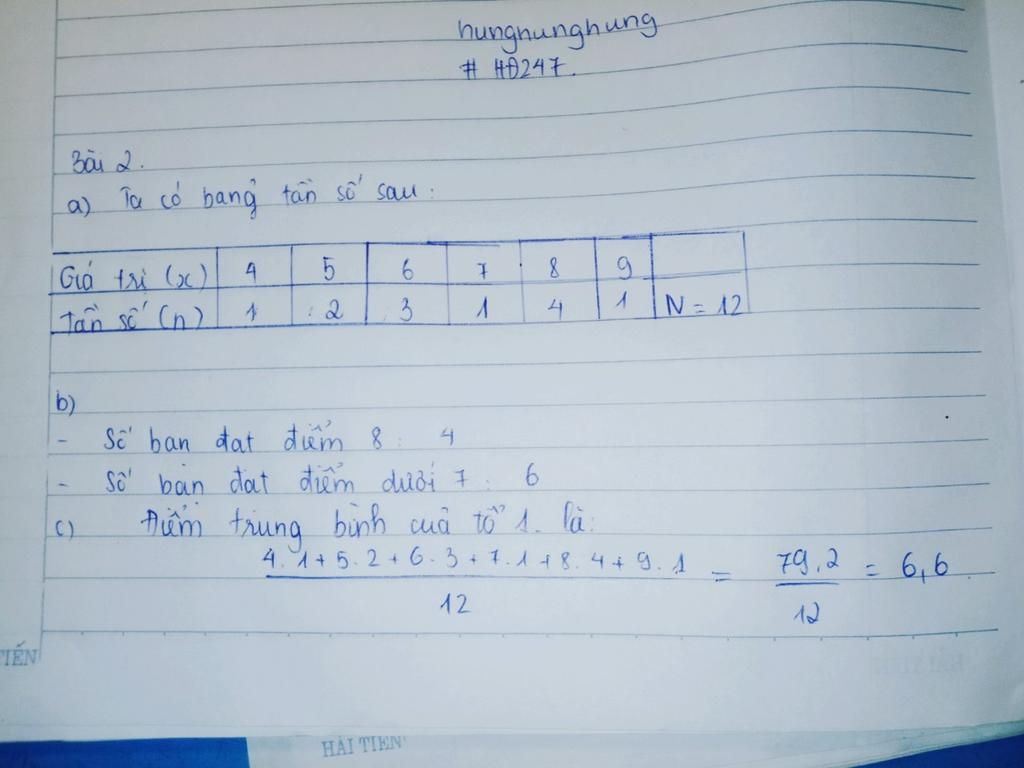 hunghunghung
# HĐ247.
Bài 2.
a) Ta có bangả tần số sau:
Giá trị (x) 4 5 6 7 8 9
Tần số (n) 1 2 3 1 4 1 N = 12
b)
- Số bạn đạt điểm 8: 4
- Số bạn đạt điểm dưới 7: 6
c) Điểm trung bình của tổ 1. là:
4.1+5.2+6.3+7.1+8.4+9.1 = 79.2 = 6,6
12 12
TIẾN
HẢI TIẾN